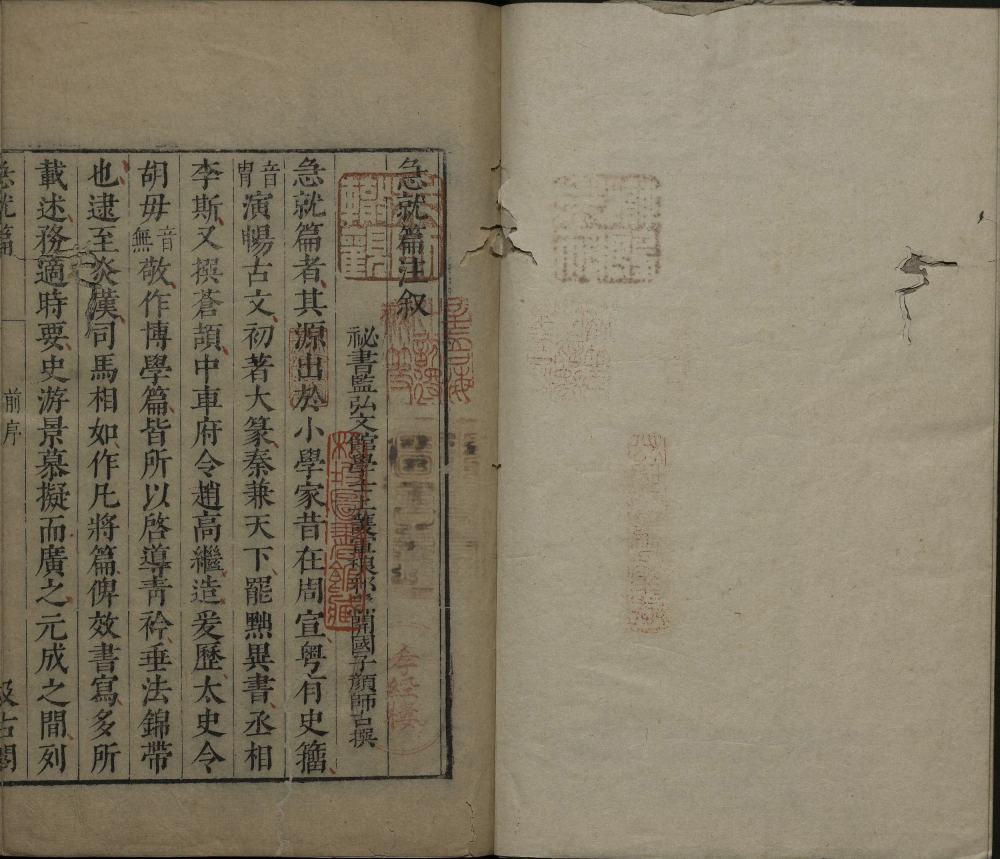 急就篇注叙
祕書監弘文館學士上護軍琅邪縣開國子顏師古撰
急就篇者其源出於小學家昔在周宣粵有史籀
音胄演暢古文初著大篆秦兼天下罷黜異書丞相
李斯又撰蒼頡中車府令趙高繼造爰歷太史令
胡毋音無敬作博學篇皆所以啓導青衿垂法錦帶
也逮至炎漢司馬相如作凡將篇俾效書寫多所
載述務適時要史游景慕擬而廣之元成之間列
急就篇 前序 汲古閣
孝經樓